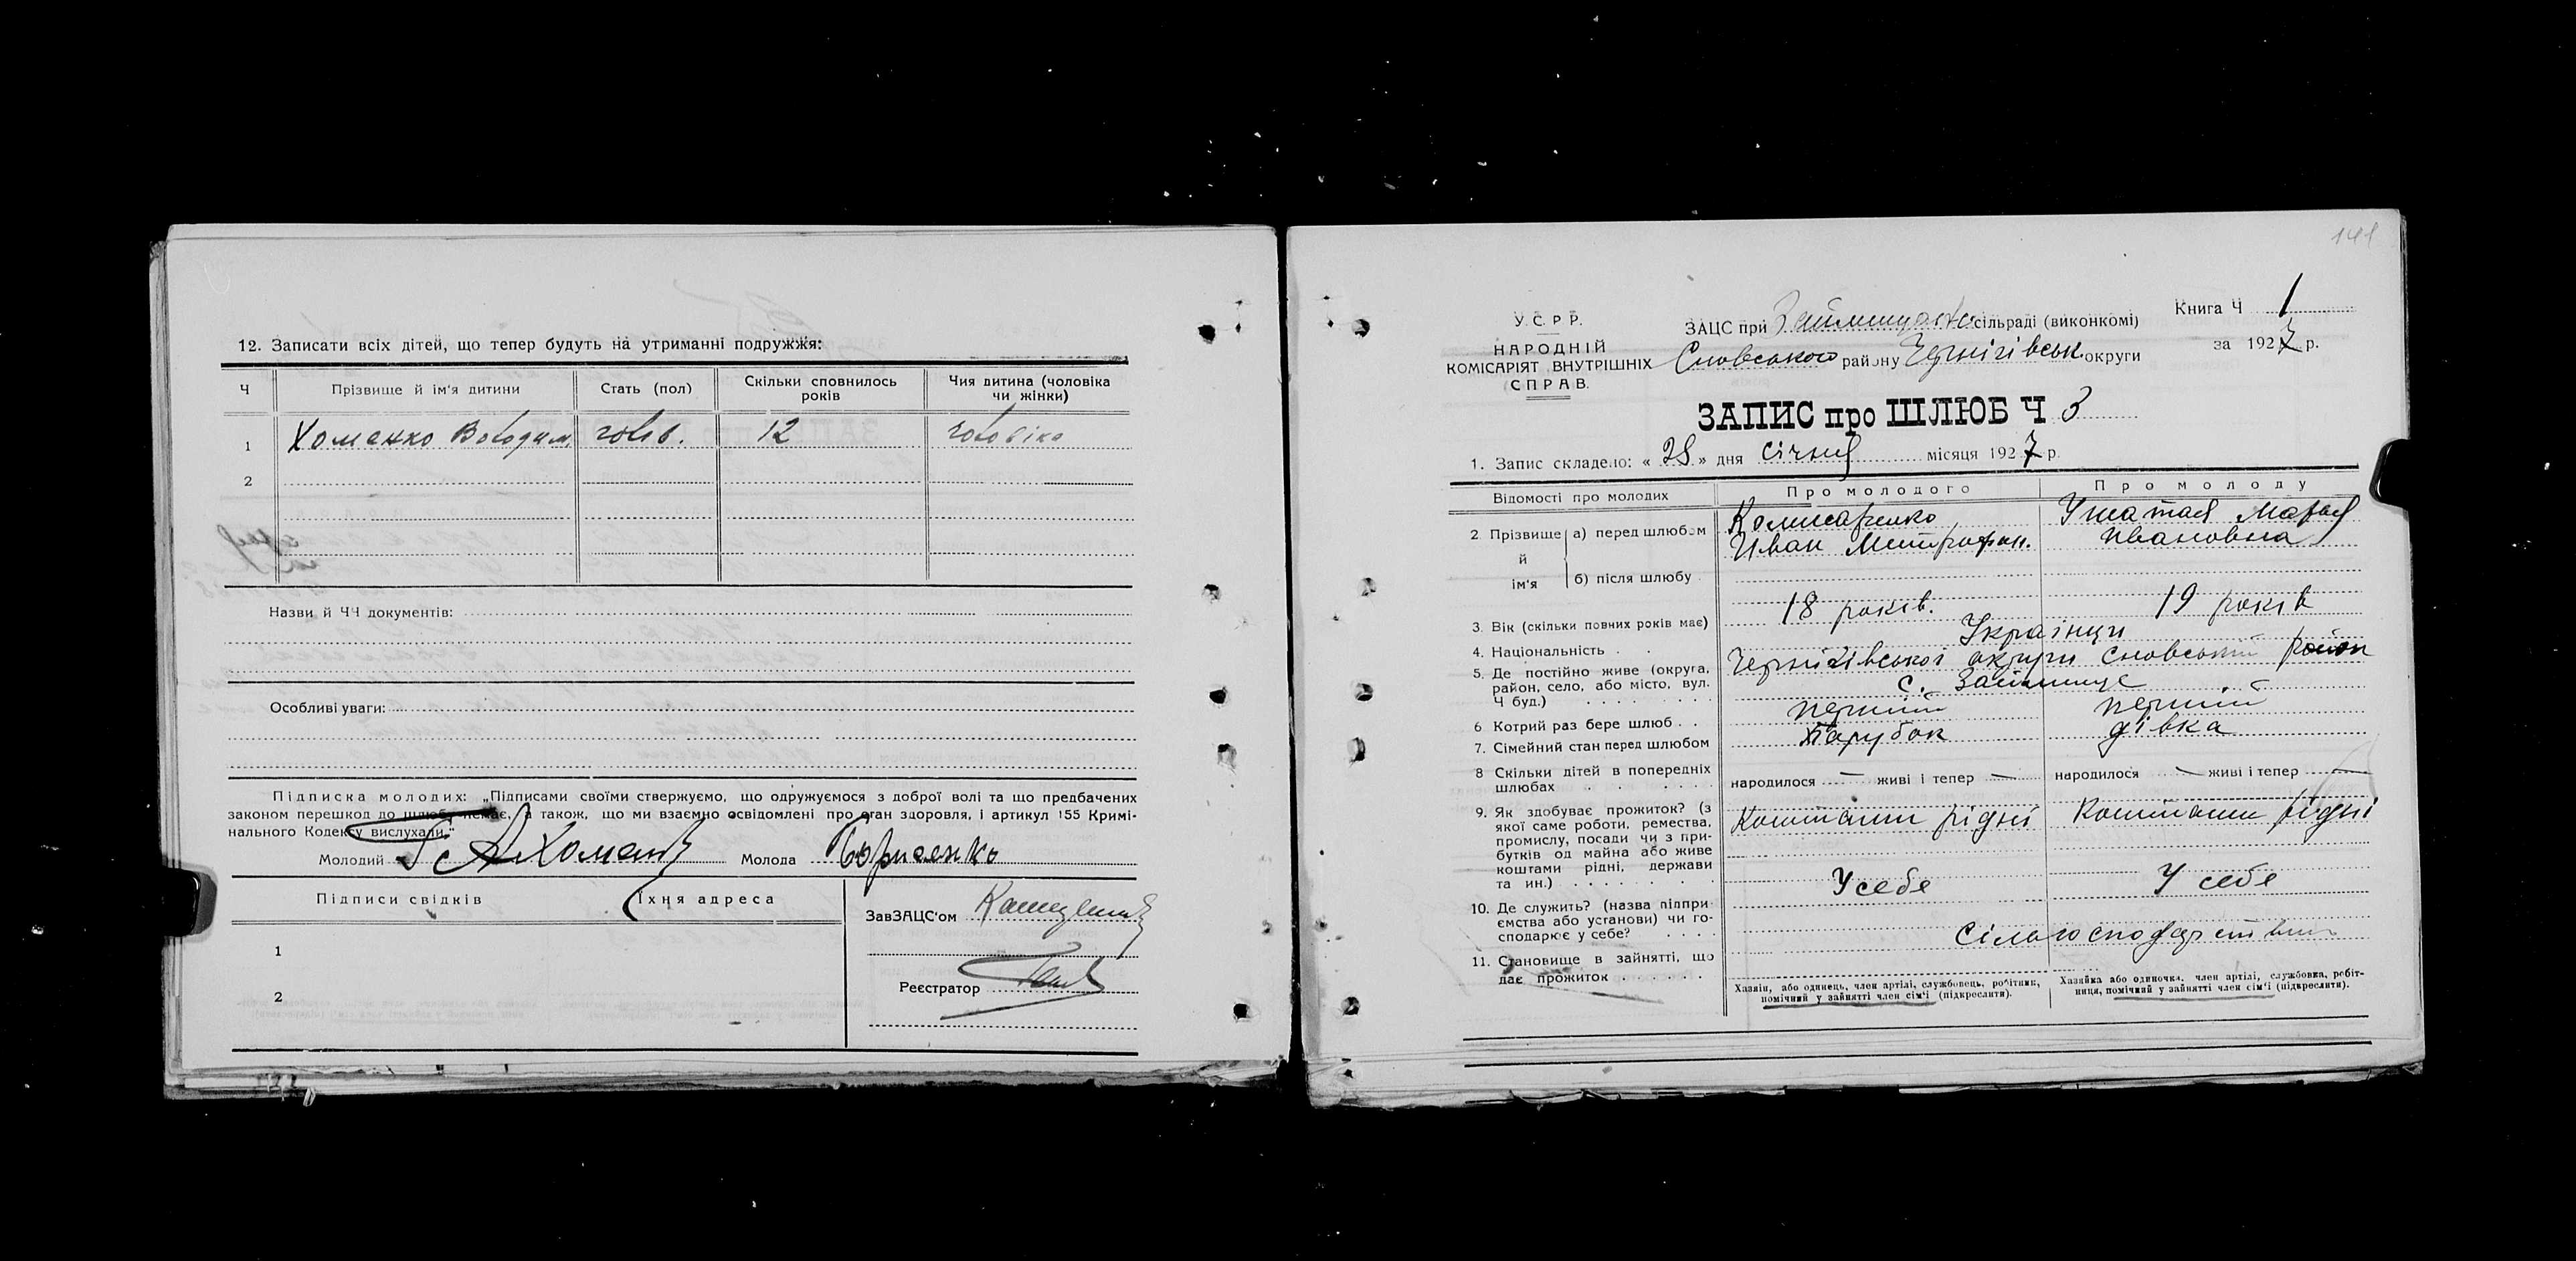 12. Записати всіх дітей, що тепер будуть на утриманні подружжя:
Ч Прізвище й ім'я дитини Стать (пол) Скільки сповнилось років Чия дитина (чоловіка чи жінки)
1 Хоменко Володим. чолов. 12 чоловіка
2
Назви й ЧЧ документів:
Особливі уваги:
Підписка молодих: „Підписами своїми стверджуємо, що одружуємося з доброї волі та що предбачених
законом перешкод до шлюбу немає, а також, що ми взаємно освідомлені про стан здоровля, і артикул 155 Кримі-
нального Кодексу вислухали."
Молодий Молода Борисенко
Підписи свідків Їхня адреса
1
2
ЗавЗАЦС'ом
Реєстратор
141
У.С.Р.Р.
НАРОДНІЙ
КОМІСАРІЯТ ВНУТРІШНІХ
СПРАВ.
ЗАЦС при сільраді (виконкомі)
Сновського району Чернігівськ. округи
Книга Ч 1
за 1927 р.
ЗАПИС про ШЛЮБ Ч 3
1. Запис складено: « 28 » дня січня місяця 1927 р.
Відомості про молодих Про молодого Про молоду
2. Прізвище й ім'я а) перед шлюбом Комисаренко Иван Митрофан. Ужатая Марья Ивановна
б) після шлюбу
3. Вік (скільки повних років має) 18 років. 19 років
4. Національність Українци
5. Де постійно живе (округа, район, село, або місто, вул. Ч буд.) Чернігівської округи Сновський район
с. Займище
6 Котрий раз бере шлюб перший перший
7. Сімейний стан перед шлюбом Парубок дівка
8 Скільки дітей в попередніх шлюбах народилося — живі і тепер — народилося — живі і тепер —
9. Як здобуває прожиток? (з якої саме роботи, ремества, промислу, посади чи з прибутків од майна або живе коштами рідні, держави та ин.) Коштами рідні Коштами рідні
10. Де служить? (назва підприємства або установи) чи господарює у себе? У себе У себе
11. Становище в зайнятті, що дає прожиток
Хазяїн, або одинець, член артілі, службовець, робітник, помічний у зайнятті член сім'ї (підкреслити).
Хазяйка або одиночка, член артілі, службовка, робітниця, помічний у зайнятті член сім'ї (підкреслити).